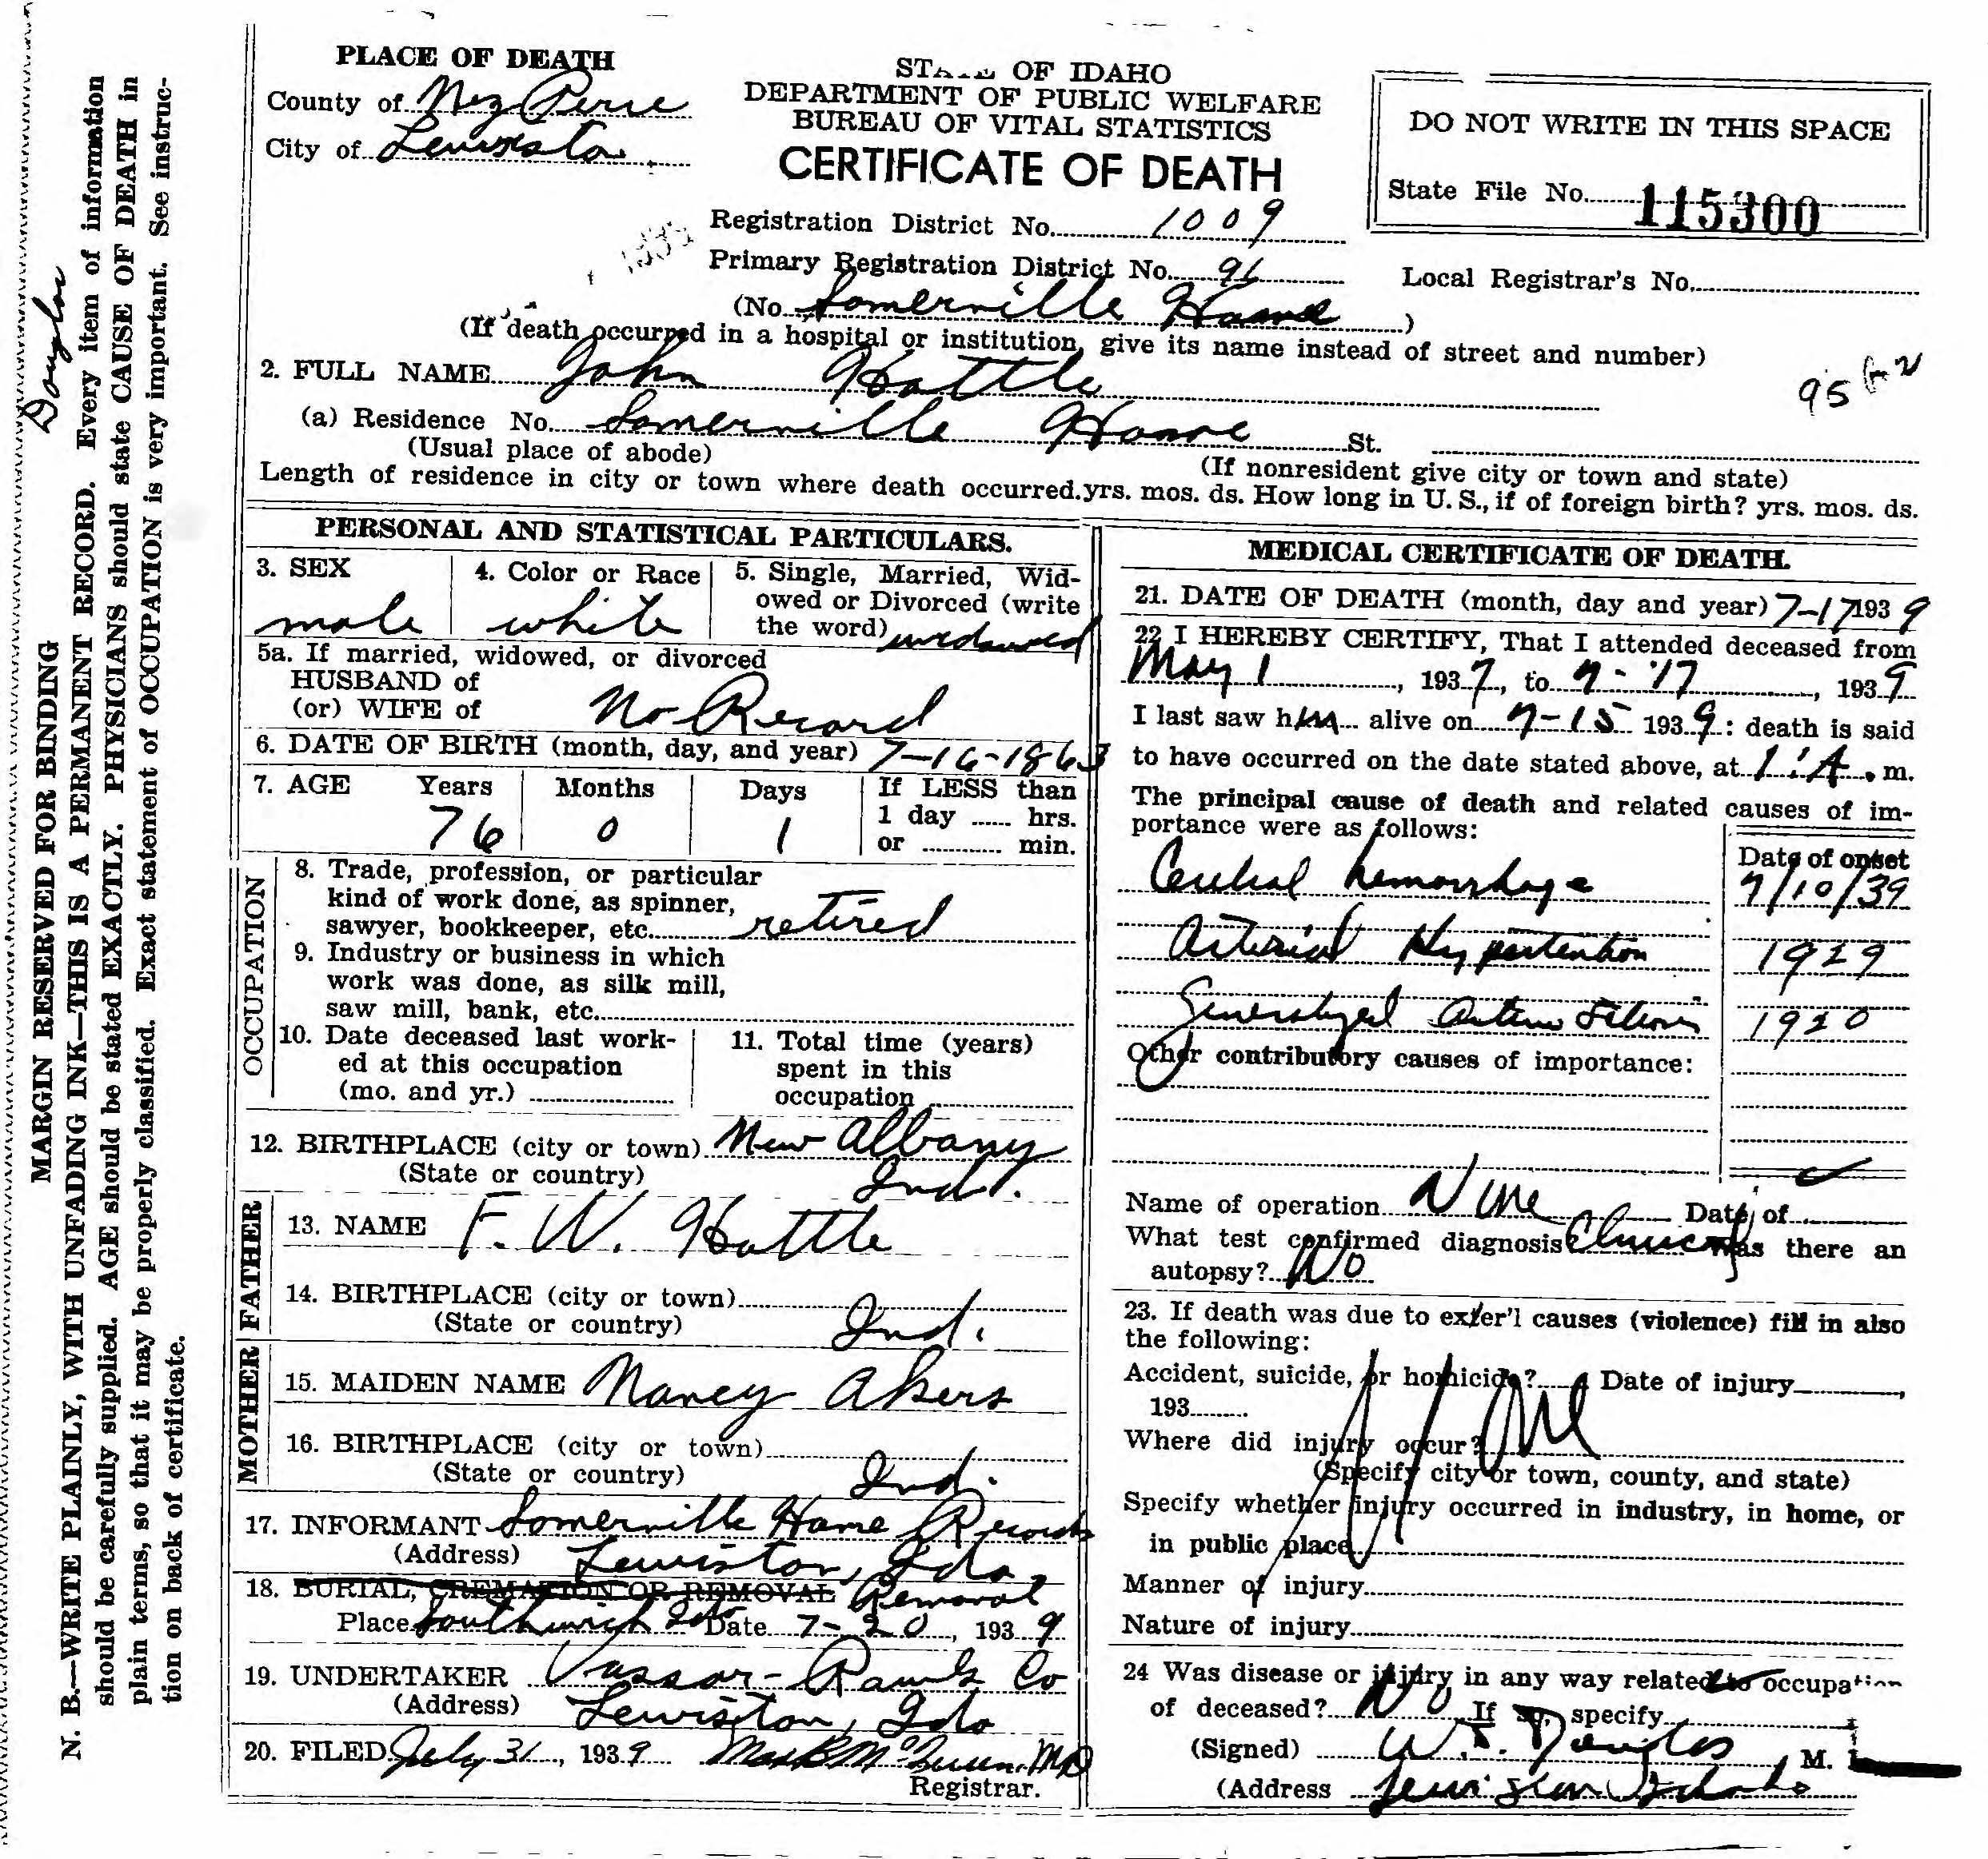 PLACE OF DEATH
County of Nez Perce
City of Lewiston
STATE OF IDAHO
DEPARTMENT OF PUBLIC WELFARE
BUREAU OF VITAL STATISTICS
CERTIFICATE OF DEATH
DO NOT WRITE IN THIS SPACE
State File No. 115300
Registration District No. 1009
Primary Registration District No. 96
Local Registrar's No.
(No. Somerville Home )
(If death occurred in a hospital or institution, give its name instead of street and number)
2. FULL NAME John Hottle
95
(a) Residence No. Somerville Home St.
(Usual place of abode)
(If nonresident give city or town and state)
Length of residence in city or town where death occurred.yrs. mos. ds. How long in U. S., if of foreign birth? yrs. mos. ds.
PERSONAL AND STATISTICAL PARTICULARS.
3. SEX
male
4. Color or Race
white
5. Single, Married, Wid-
owed or Divorced (write
the word) widowed
5a. If married, widowed, or divorced
HUSBAND of
(or) WIFE of No Record
6. DATE OF BIRTH (month, day, and year) 7-16-1863
7. AGE Years Months Days If LESS than
1 day ...... hrs.
76 0 1 or ............ min.
OCCUPATION
8. Trade, profession, or particular
kind of work done, as spinner,
sawyer, bookkeeper, etc. retired
9. Industry or business in which
work was done, as silk mill,
saw mill, bank, etc.
10. Date deceased last work-
ed at this occupation
(mo. and yr.)
11. Total time (years)
spent in this
occupation
12. BIRTHPLACE (city or town) New Albany
(State or country) Ind.
FATHER
13. NAME F. W. Hottle
14. BIRTHPLACE (city or town)
(State or country) Ind.
MOTHER
15. MAIDEN NAME Nancy Akers
16. BIRTHPLACE (city or town)
(State or country) Ind.
17. INFORMANT Somerville Home Records
(Address) Lewiston, Ida.
18. BURIAL, CREMATION OR REMOVAL Removal
Place Southwick Ida Date 7-20, 1939
19. UNDERTAKER Vassar-Rawls Co
(Address) Lewiston, Ida
20. FILED July 31, 1939 M.D.
Registrar.
MEDICAL CERTIFICATE OF DEATH.
21. DATE OF DEATH (month, day and year) 7-17 1939
22 I HEREBY CERTIFY, That I attended deceased from
May 1, 1937, to 7-17, 1939
I last saw him alive on 7-15 1939: death is said
to have occurred on the date stated above, at 1:A.m.
The principal cause of death and related causes of im-
portance were as follows:
Date of onset
Cerebral hemorrhage 7/10/39
Arterial Hypertention 1929
Generalized Arterio Sclerosis 1920
Other contributory causes of importance:
Name of operation None Date of
What test confirmed diagnosis Clinical Was there an
autopsy? No
23. If death was due to exter'l causes (violence) fill in also
the following:
Accident, suicide, or homicide? Date of injury
193
Where did injury occur?
(Specify city or town, county, and state)
Specify whether injury occurred in industry, in home, or
in public place
Manner of injury
Nature of injury
24 Was disease or injury in any way related to occupation
of deceased? No If so, specify
(Signed) Douglas, M.
(Address Lewiston Idaho
MARGIN RESERVED FOR BINDING
Douglas
N. B.—WRITE PLAINLY, WITH UNFADING INK—THIS IS A PERMANENT RECORD. Every item of information
should be carefully supplied. AGE should be stated EXACTLY. PHYSICIANS should state CAUSE OF DEATH in
plain terms, so that it may be properly classified. Exact statement of OCCUPATION is very important. See instruc-
tion on back of certificate.